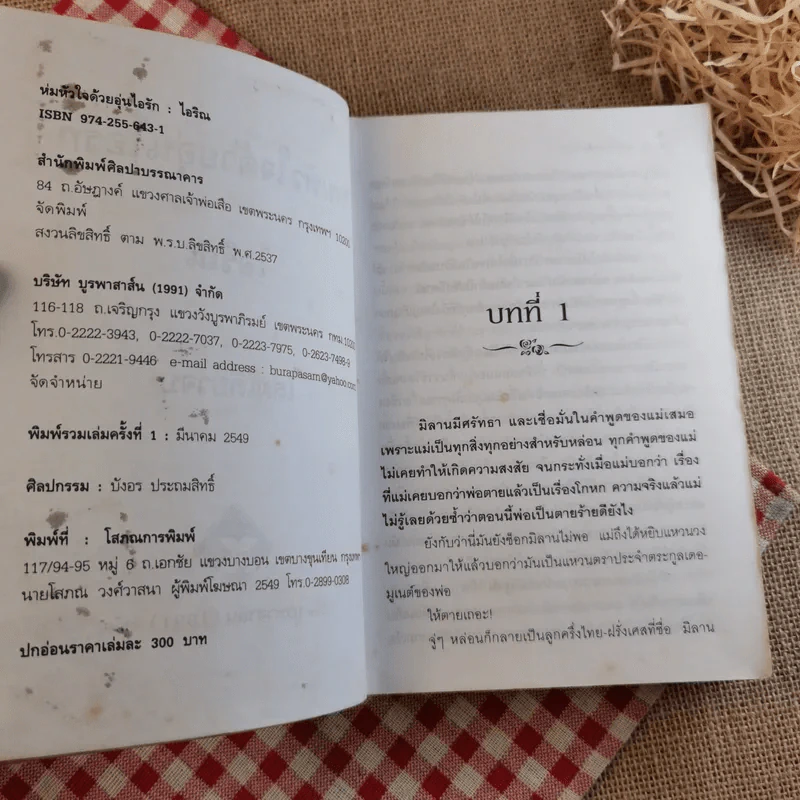 ห่มหัวใจด้วยอุ่นไอรัก : ไอริณ
ISBN 974-255-643-1
สำนักพิมพ์ศิลปาบรรณาคาร
84 ถ.อัษฎางค์ แขวงศาลเจ้าพ่อเสือ เขตพระนคร กรุงเทพฯ 10200
จัดพิมพ์
สงวนลิขสิทธิ์ ตาม พ.ร.บ.ลิขสิทธิ์ พ.ศ.2537
บริษัท บูรพาสาส์น (1991) จำกัด
116-118 ถ.เจริญกรุง แขวงวังบูรพาภิรมย์ เขตพระนคร กทม.10200
โทร.0-2222-3943, 0-2222-7037, 0-2223-7975, 0-2623-7498-9
โทรสาร 0-2221-9446 e-mail address : burapasarn@yahoo.com
จัดจำหน่าย
พิมพ์รวมเล่มครั้งที่ 1 : มีนาคม 2549
ศิลปกรรม : บังอร ประถมสิทธิ์
พิมพ์ที่ : โสภณการพิมพ์
117/94-95 หมู่ 6 ถ.เอกชัย แขวงบางบอน เขตบางขุนเทียน
นายโสภณ วงศ์วาสนา ผู้พิมพ์โฆษณา 2549 โทร.0-2899-0308
ปกอ่อนราคาเล่มละ 300 บาท
บทที่ 1
มิลานมีศรัทธา และเชื่อมั่นในคำพูดของแม่เสมอ
เพราะแม่เป็นทุกสิ่งทุกอย่างสำหรับหล่อน ทุกคำพูดของแม่
ไม่เคยทำให้เกิดความสงสัย จนกระทั่งเมื่อแม่บอกว่า เรื่อง
ที่แม่เคยบอกว่าพ่อตายแล้วเป็นเรื่องโกหก ความจริงแล้วแม่
ไม่รู้เลยด้วยซ้ำว่าตอนนี้พ่อเป็นตายร้ายดียังไง
ยังกับว่านี่มันยังช็อกมิลานไม่พอ แม่ถึงได้หยิบแหวนวง
ใหญ่ออกมาให้แล้วบอกว่ามันเป็นแหวนตราประจำตระกูลเดอ-
มูเนต์ของพ่อ
ให้ตายเถอะ!
จู่ๆ หล่อนก็กลายเป็นลูกครึ่งไทย-ฝรั่งเศสที่ชื่อ มิลาน